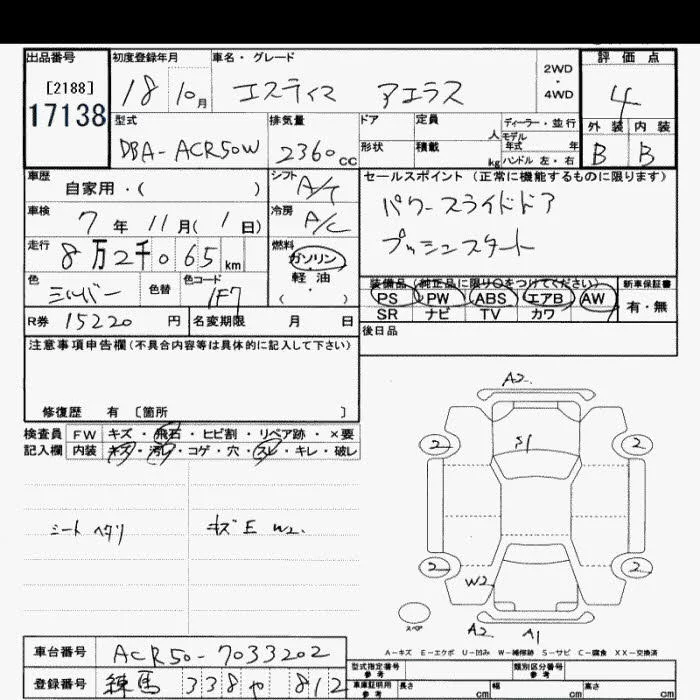 出品番号
[2188]
17138
初度登録年月
18 10月
車名・グレード
エスティマ アエラス
2WD
・
4WD
評価点
4
外装 内装
B B
型式
DBA-ACR50W
排気量
2360cc
ドア 定員 人
形状 積載 kg
ディーラー・並行
モデル
年式 年
ハンドル 左・右
車歴
自家用・( )
シフト
A/T
車検
7年11月(1日)
冷房
A/C
走行
8万2千065km
燃料
ガソリン
軽・油
( )
色
シルバー
色替
色コード
1F7
R券 15220円
名変期限 月 日
セールスポイント(正常に機能するものに限ります)
パワースライドドア
プッシュスタート
装備品(純正品に限り○をつけてください)
PS PW ABS エアB AW
SR ナビ TV カワ
新車保証書
有・無
後日品
注意事項申告欄(不具合内容等は具体的に記入して下さい)
修復歴 有 〔箇所 〕
検査員 FW キズ・飛石・ヒビ割・リペア跡・×要
記入欄 内装 キズ・汚レ・コゲ・穴・スレ・キレ・破レ
シート ヘタリ
キズE W2.
A2.
2 2
S1
2 2
W2
スペア
A2 A1
A-キズ E-エクボ U-凹み W-補修跡 S-サビ C-腐食 XX-交換済
車台番号 ACR50-7033202
登録番号 練馬 338 や 812
型式指定番号
参考
類別区分番号
参考
車庫証明用
参考
長さ cm
幅 cm
高さ cm